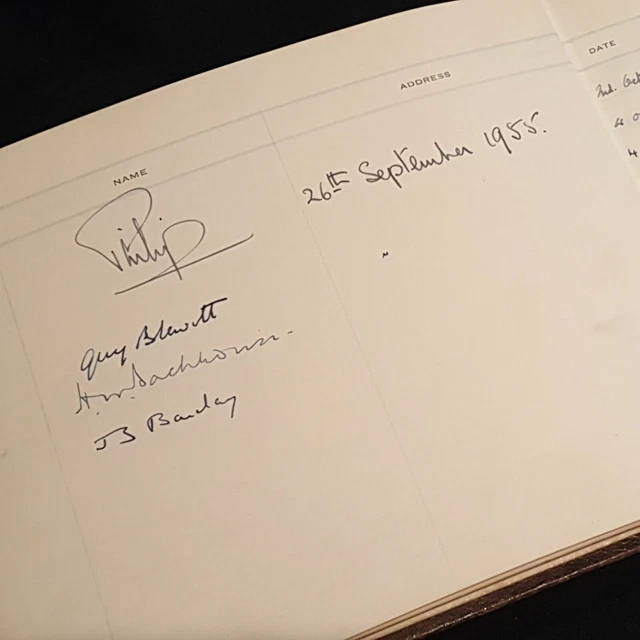 NAME ADDRESS
Philip 26th September 1955.
Guy Blewitt
H.W. Backhouse.
JB Barclay
DATE
2nd. Oct
4